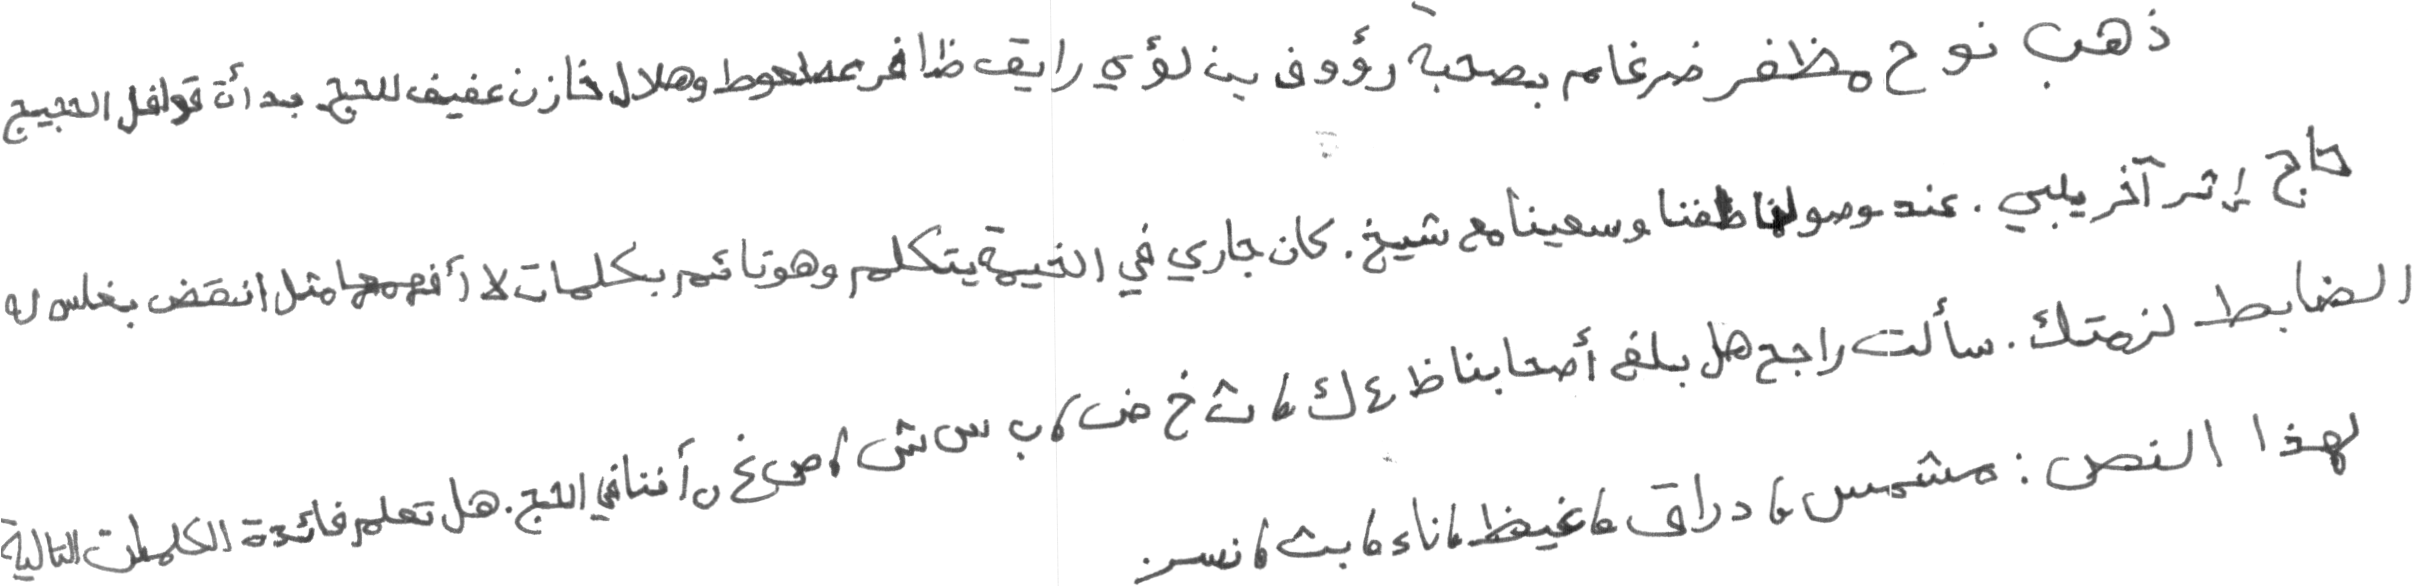 ذهب نوح مظفر ضرغام بصحبة رؤوف بن لؤي رايق ظافر عملعوط وهلال خازن عفيف للحج بدأت قوافل الحجيج
حاج إثر آخر يلبي. عند وصولنا طفنا وسعينا مع شيخ. كان جاري في الخيمة يتكلم وهو نائم بكلمات لا أفهمها مثل انقض بغلس له
الضابط لزمتك. سألت راجح هل بلغ أصحابنا ظ ء ك، ث خ ض، ب س ش، ص غ ن أننا في الحج. هل تعلم فائدة الكلمات التالية
لهذا النص: مشمس، دراق، غيظ، ناء، بث، نسر.